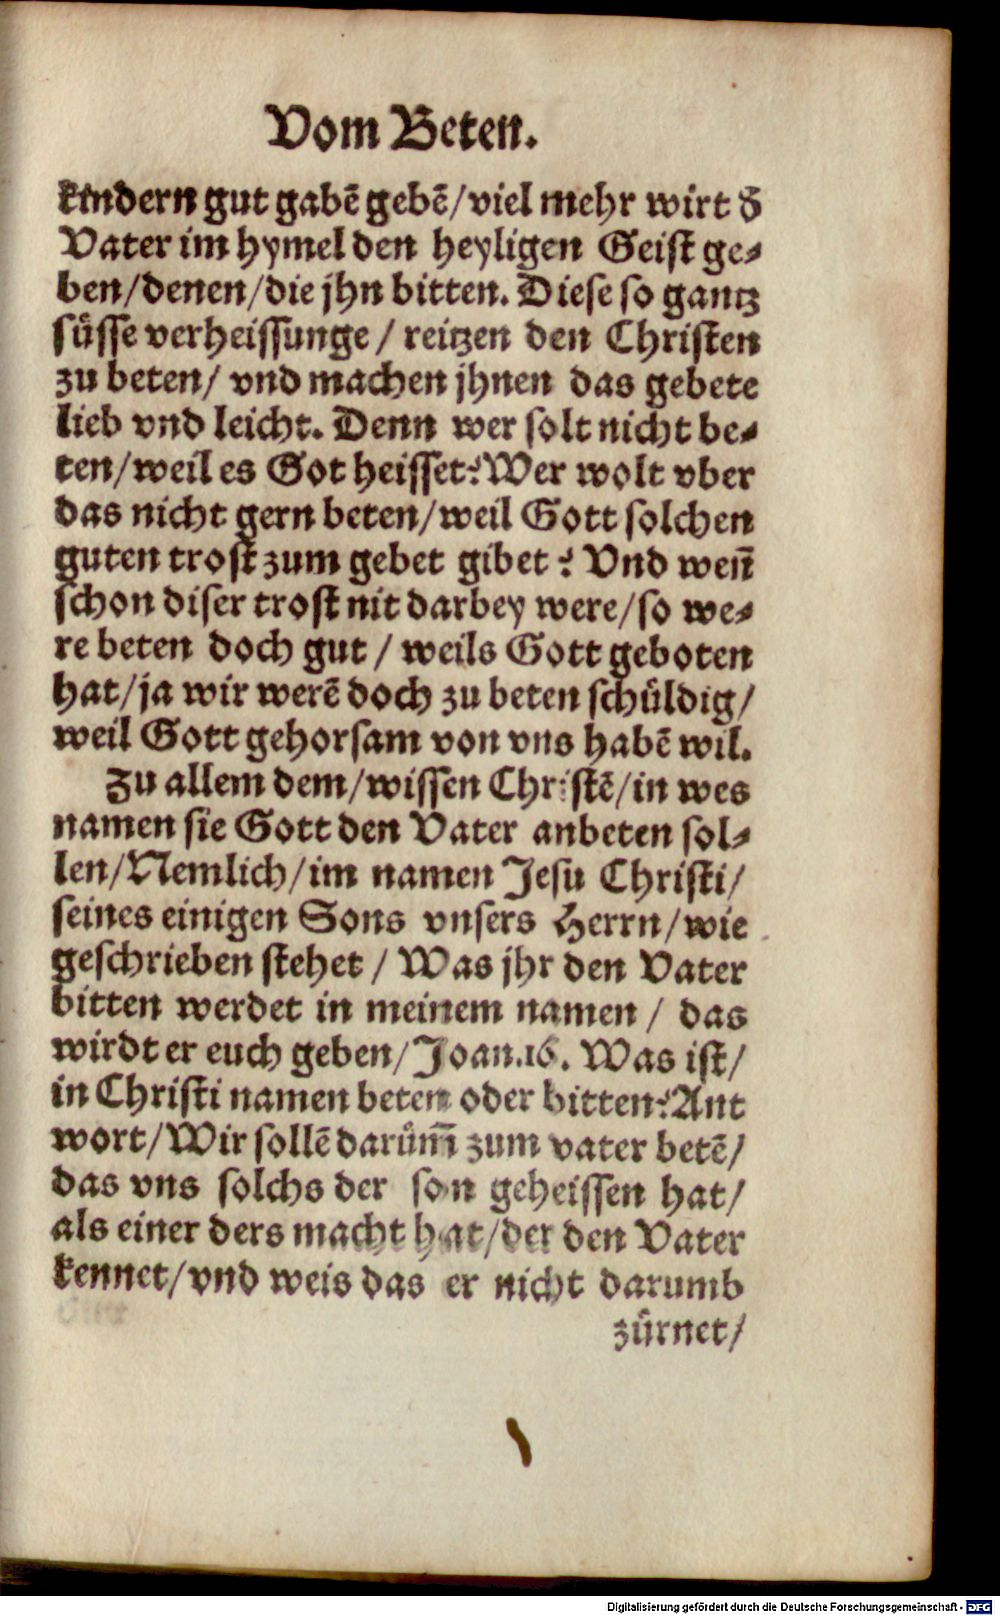 Vom Beten.
kindern gut gabē gebē/viel mehr wirt d̄
Vater im hymel den heyligen Geist ge⸗
ben/denen/die jhn bitten. Diese so gantz
süsse verheissunge/ reitzen den Christen
zu beten/ vnd machen jhnen das gebete
lieb vnd leicht. Denn wer solt nicht be⸗
ten/weil es Got heisset? Wer wolt vber
das nicht gern beten/weil Gott solchen
guten trost zum gebet gibet? Vnd weñ
schon diser trost nit darbey were/so we⸗
re beten doch gut/ weils Gott geboten
hat/ja wir werē doch zu beten schüldig/
weil Gott gehorsam von vns habē wil.
Zu allem dem/wissen Christē/in wes
namen sie Gott den Vater anbeten sol⸗
len/Nemlich/im namen Jesu Christi/
seines einigen Sons vnsers Herrn/wie
geschrieben stehet/ Was jhr den Vater
bitten werdet in meinem namen/ das
wirdt er euch geben/Joan.16. Was ist/
in Christi namen beten oder bitten? Ant
wort/Wir sollē darüm̄ zum vater betē/
das vns solchs der son geheissen hat/
als einer ders macht hat/der den Vater
kennet/vnd weis das er nicht darumb
zürnet/
Digitalisierung gefördert durch die Deutsche Forschungsgemeinschaft - DFG